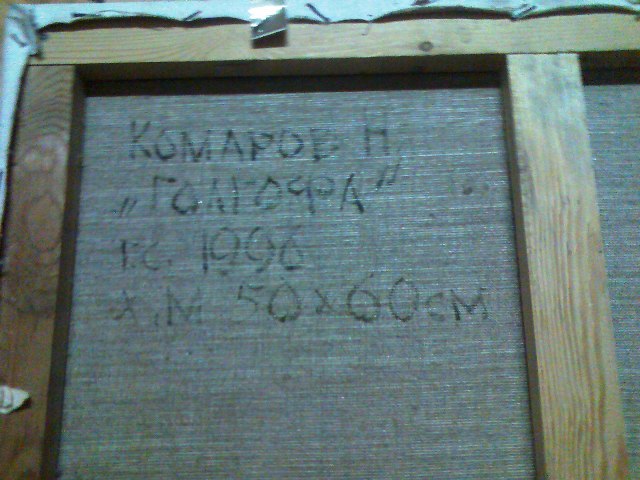 Комаров Н.
„Голгофа"
г.с. 1996
х.м 50х60см